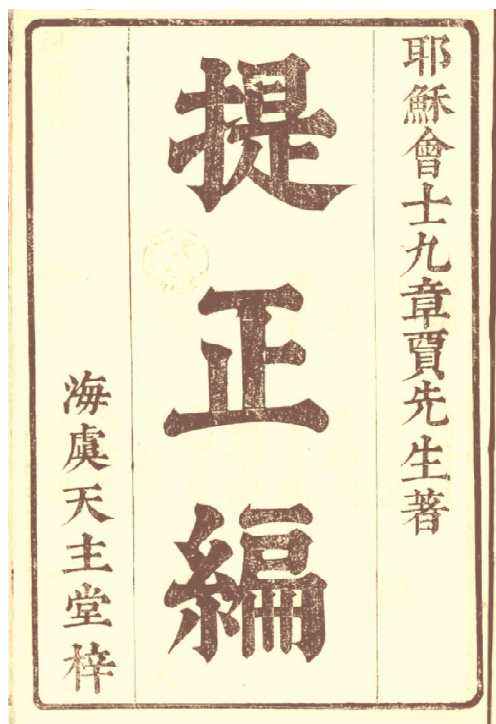 耶穌會士九章賈先生著
提正編
海虞天主堂梓